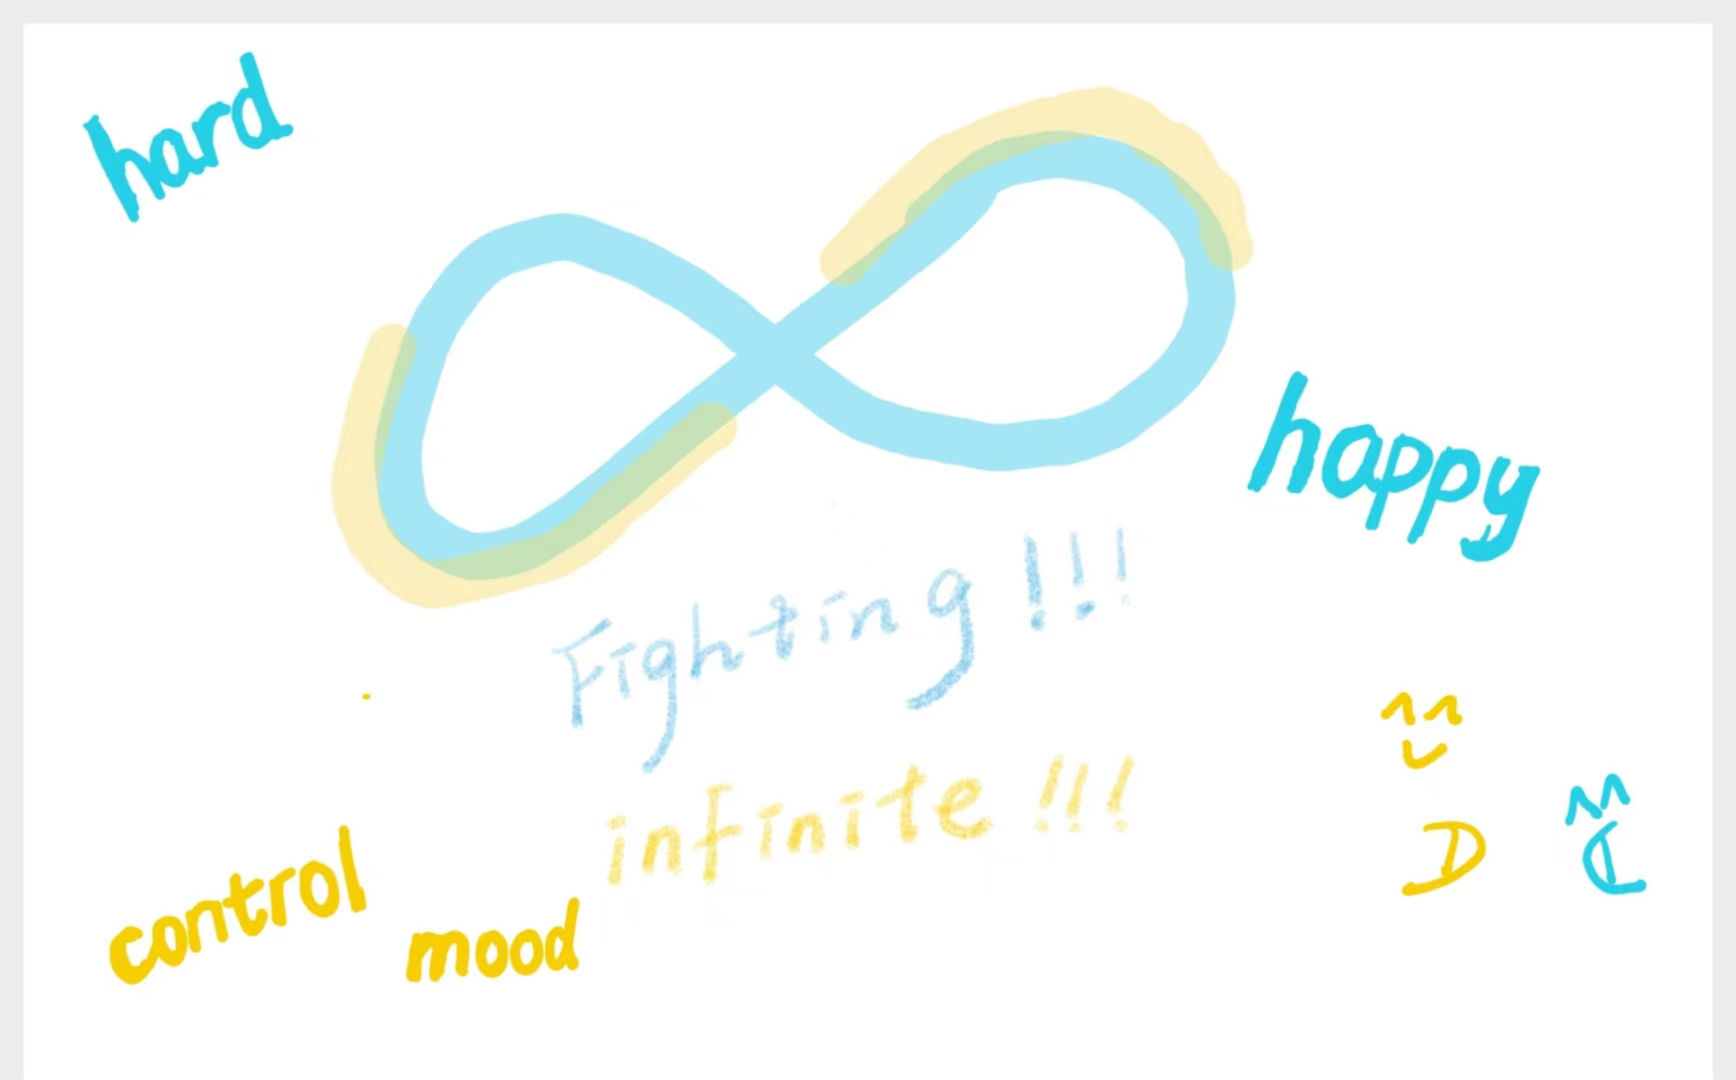 hard
happy
Fighting!!!
infinite!!!
control
mood
D